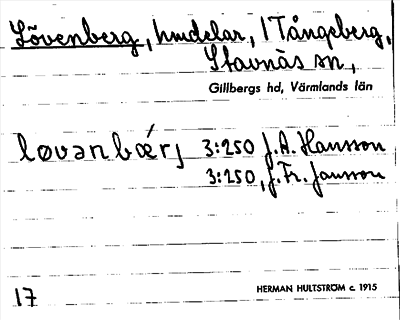 Lövenberg, hmdelar, i Tångeberg,
Stavnäs sn,
Gillbergs hd, Värmlands län
løvənbǽrj 3:250 J.A. Hansson
3:250, J.Fr. Jansson
17
HERMAN HULTSTRÖM c. 1915